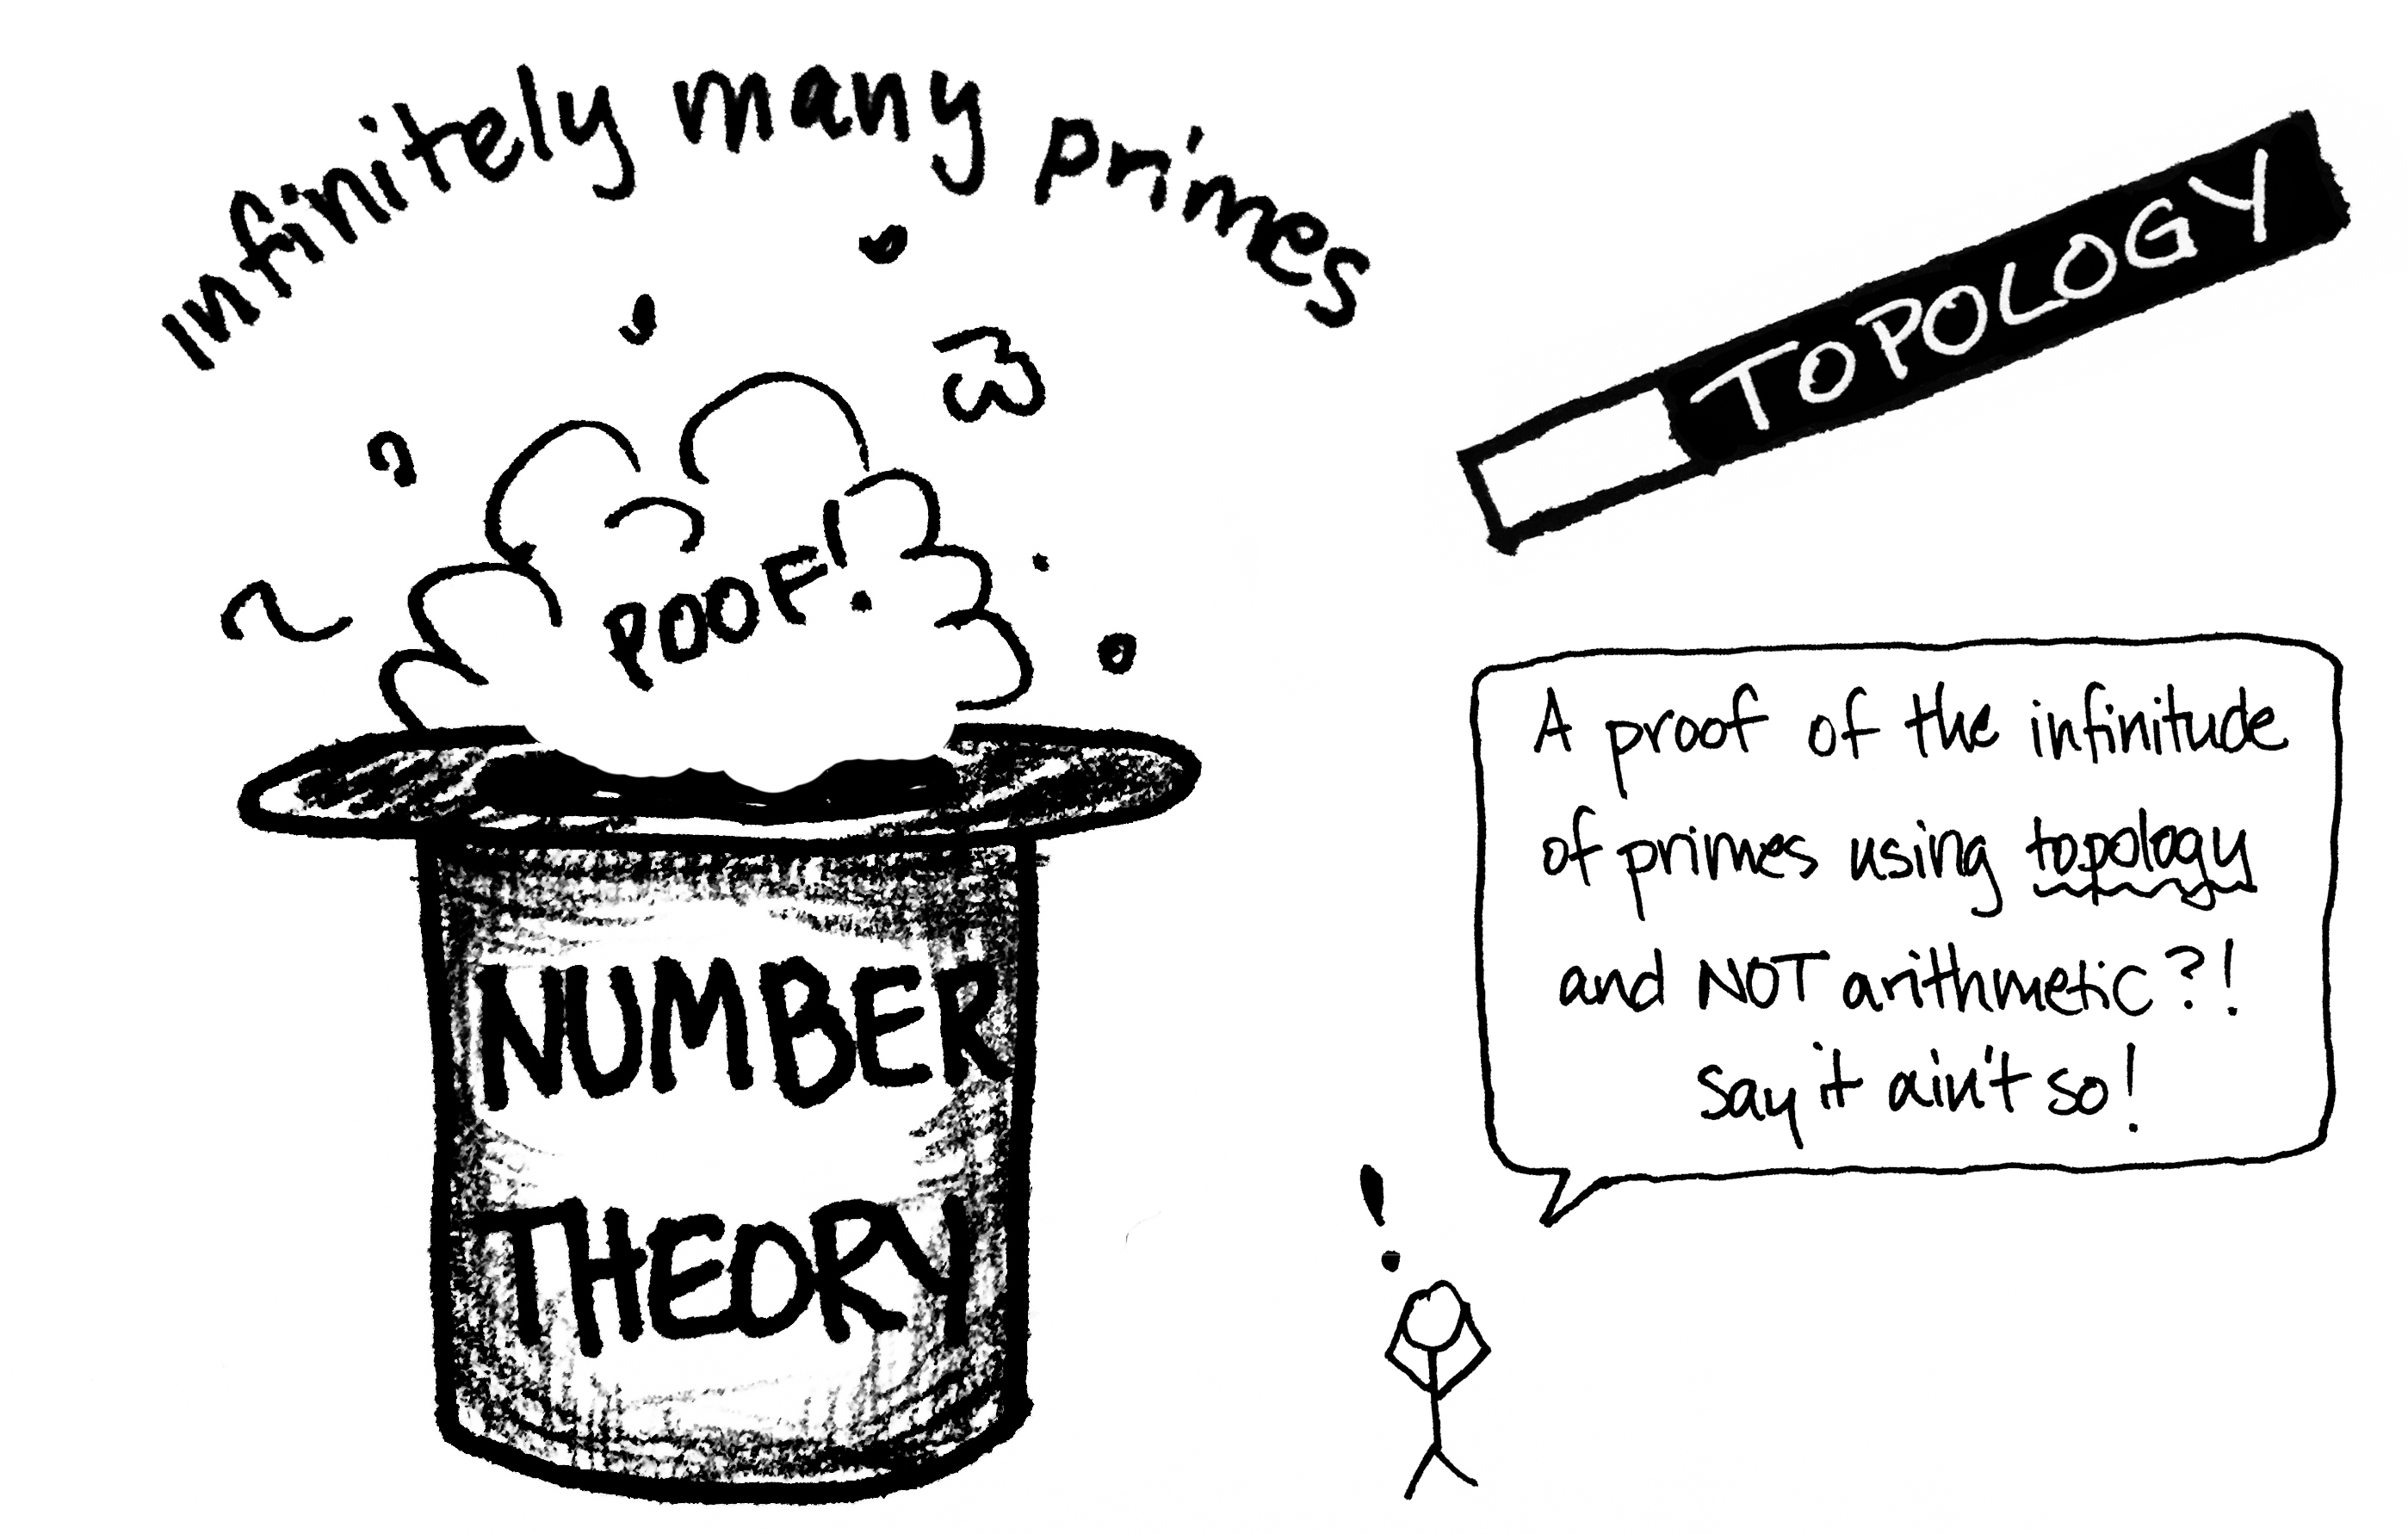 Infinitely many primes
TOPOLOGY
POOF!
NUMBER
THEORY
A proof of the infinitude
of primes using topology
and NOT arithmetic?!
say it ain't so!
!